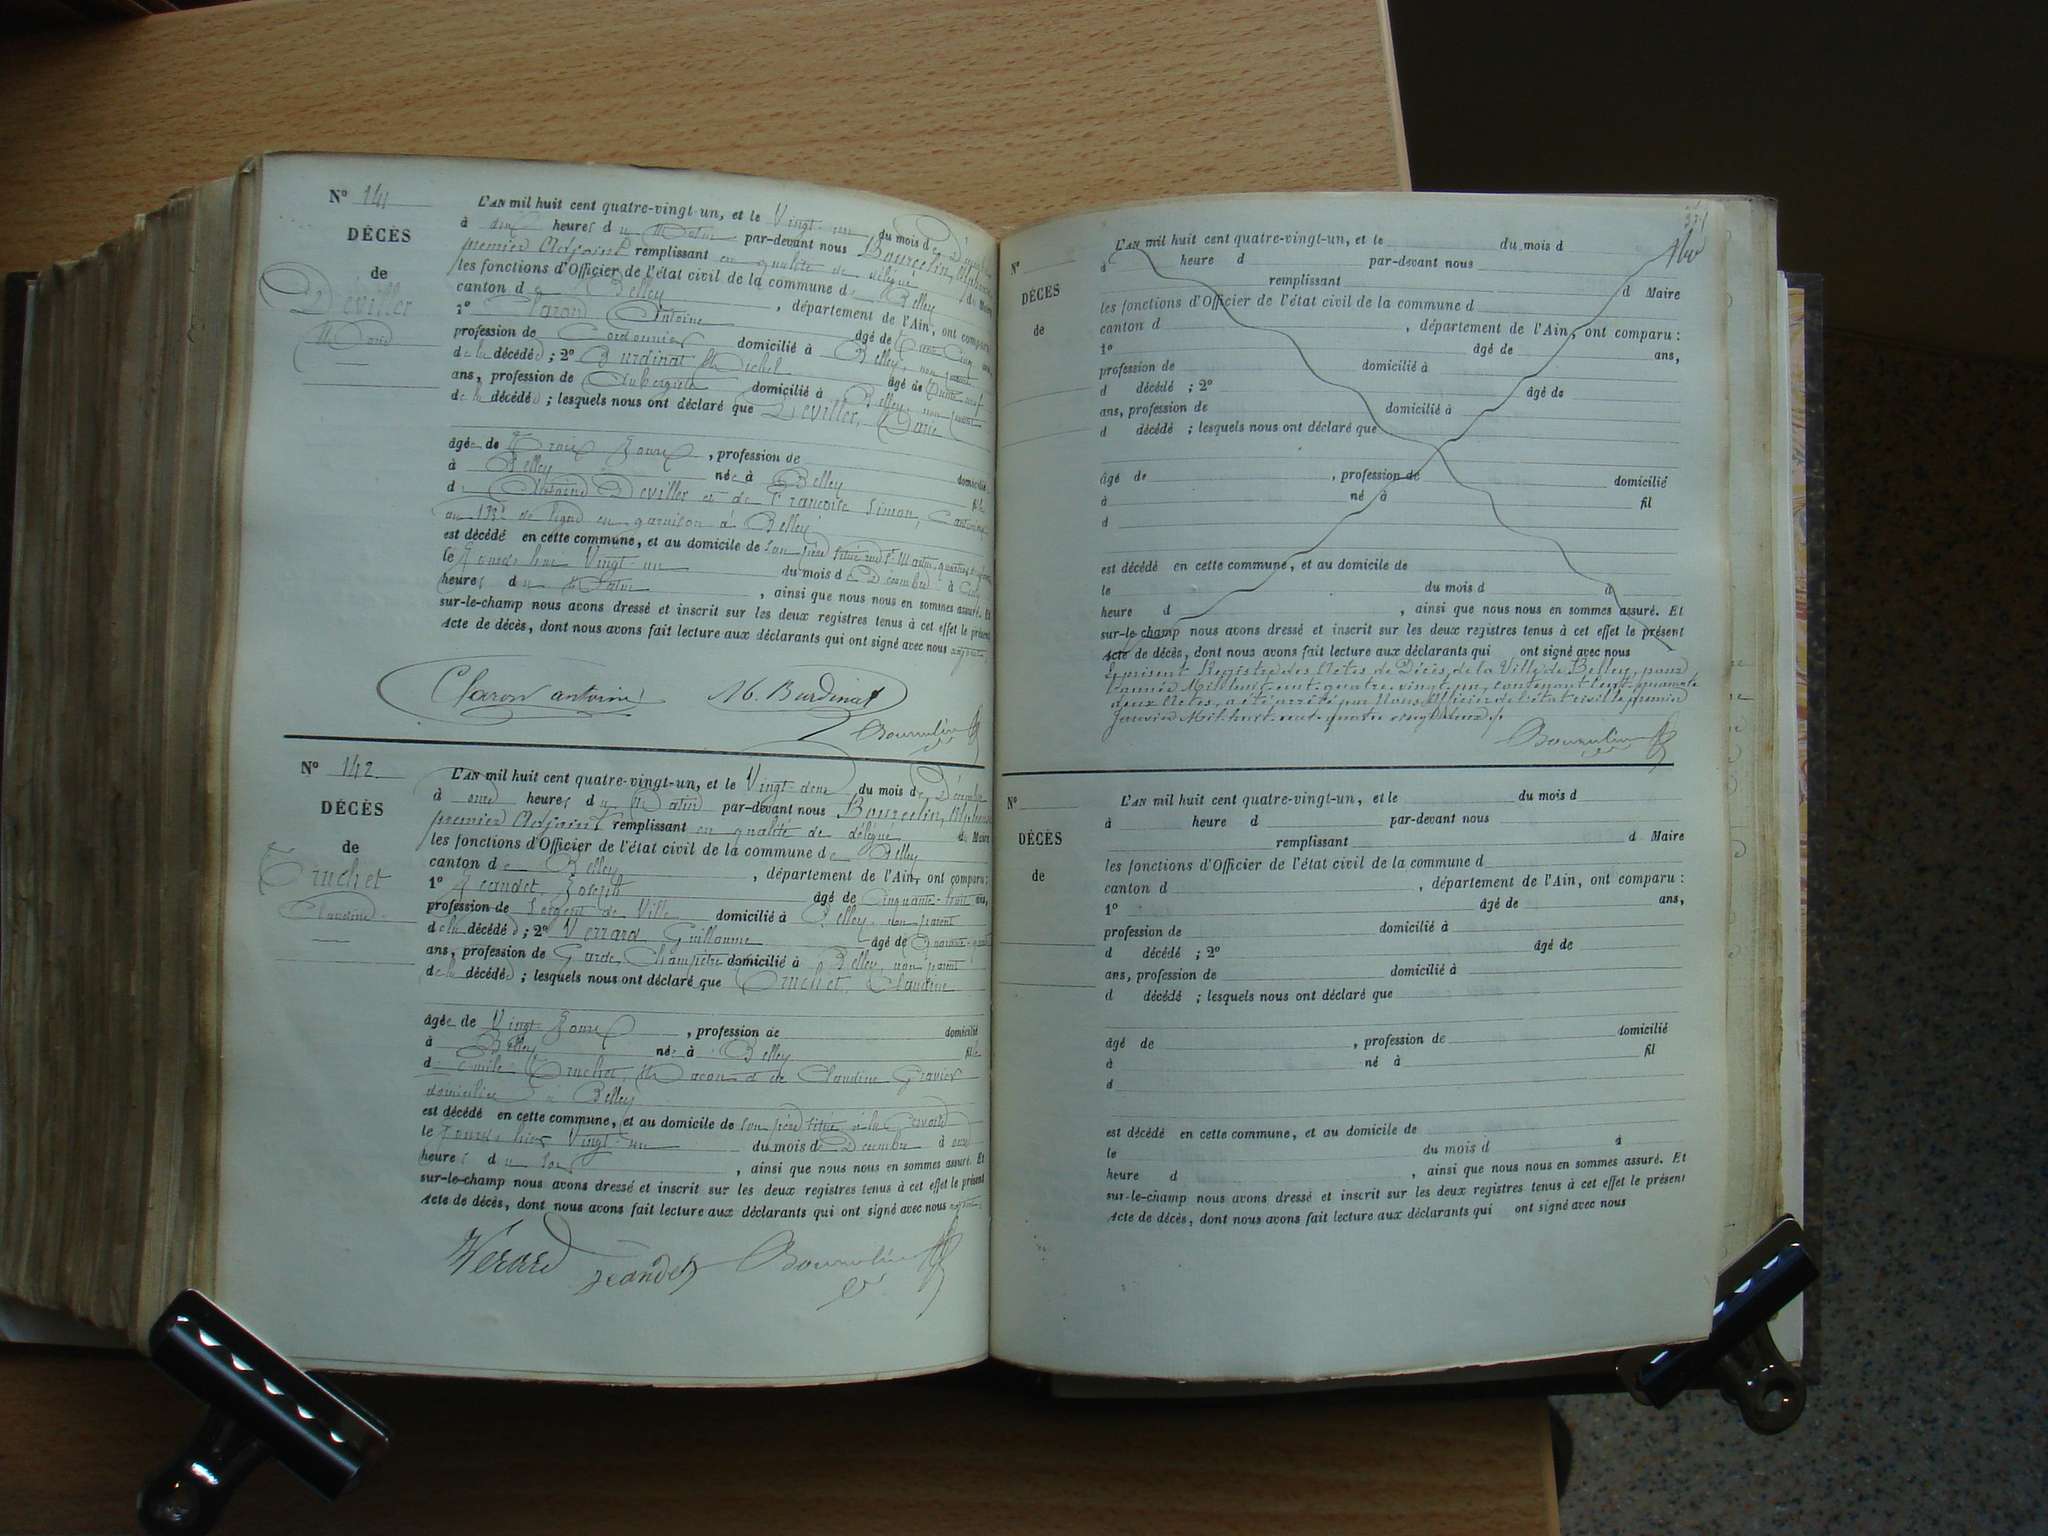 N° 141
DÉCÈS
de
Deviller
Marie
L'AN mil huit cent quatre-vingt-un, et le Vingt-un du mois de Décembre
à dix heures du Matin par-devant nous Bourcelin, Alphonse
premier Adjoint remplissant en qualité de délégué du Maire
les fonctions d'Officier de l'état civil de la commune de Belley
canton de Belley, département de l'Ain, ont comparu :
1° Claron Antoine âgé de Trente Cinq ans,
profession de Cordonnier domicilié à Belley, non parent
de la décédée ; 2° Burdinat Michel âgé de Trente neuf
ans, profession de Aubergiste domicilié à Belley, non parent
de la décédée ; lesquels nous ont déclaré que Deviller, Marie
âgée de Trois Jours, profession de domicilié
à Belley née à Belley fille
de Antoine Deviller et de Françoise Simon, Cantinière
au 133e de ligne en garnison à Belley
est décédé en cette commune, et au domicile de son père situé rue St Martin,
le Jourd'hui Vingt-un du mois de Décembre à
heures du Matin, ainsi que nous nous en sommes assuré. Et
sur-le-champ nous avons dressé et inscrit sur les deux registres tenus à cet effet le présent
Acte de décès, dont nous avons fait lecture aux déclarants qui ont signé avec nous
Claron antoine M. Burdinat
Bourcelin
N° 142
DÉCÈS
de
Truchet
Claudine
L'AN mil huit cent quatre-vingt-un, et le Vingt-deux du mois de Décembre
à onze heures du Matin par-devant nous Bourcelin, Alphonse
premier Adjoint remplissant en qualité de délégué du Maire
les fonctions d'Officier de l'état civil de la commune de Belley
canton de Belley, département de l'Ain, ont comparu :
1° Jeandet, Joseph âgé de Cinquante-trois ans,
profession de Sergent de Ville domicilié à Belley non parent
de la décédée ; 2° Verrard Guillaume âgé de Quarante-
ans, profession de Garde Champêtre domicilié à Belley, non parent
de la décédée ; lesquels nous ont déclaré que Truchet, Claudine
âgée de Vingt Jours, profession de domicilié
à Belley née à Belley fille
de Emile Truchet, Maçon et de Claudine Gravier
domiciliés à Belley
est décédé en cette commune, et au domicile de son père situé à la
le Jourd'hier Vingt-un du mois de Décembre à onze
heures du soir, ainsi que nous nous en sommes assuré. Et
sur-le-champ nous avons dressé et inscrit sur les deux registres tenus à cet effet le présent
Acte de décès, dont nous avons fait lecture aux déclarants qui ont signé avec nous
Vérard Jeandet Bourcelin
N°
DÉCÈS
de
L'AN mil huit cent quatre-vingt-un, et le du mois d
à heure d par-devant nous
remplissant d Maire
les fonctions d'Officier de l'état civil de la commune d
canton d , département de l'Ain, ont comparu :
1° âgé de ans,
profession de domicilié à
d décédé ; 2° âgé de
ans, profession de domicilié à
d décédé ; lesquels nous ont déclaré que
âgé de , profession de domicilié
à né à fil
d
est décédé en cette commune, et au domicile de
le du mois d à
heure d , ainsi que nous nous en sommes assuré. Et
sur-le-champ nous avons dressé et inscrit sur les deux registres tenus à cet effet le présent
Acte de décès, dont nous avons fait lecture aux déclarants qui ont signé avec nous
Le présent Registre des Actes de Décès de la Ville de Belley, pour
l'année Mil huit-cent-quatre-vingt-un, contenant Cent-quarante
deux Actes, a été arrêté par Nous Officier de l'état civil le premier
Janvier Mil huit-cent-quatre vingt deux.
Bourcelin
N°
DÉCÈS
de
L'AN mil huit cent quatre-vingt-un, et le du mois d
à heure d par-devant nous
remplissant d Maire
les fonctions d'Officier de l'état civil de la commune d
canton d , département de l'Ain, ont comparu :
1° âgé de ans,
profession de domicilié à
d décédé ; 2° âgé de
ans, profession de domicilié à
d décédé ; lesquels nous ont déclaré que
âgé de , profession de domicilié
à né à fil
d
est décédé en cette commune, et au domicile de
le du mois d à
heure d , ainsi que nous nous en sommes assuré. Et
sur-le-champ nous avons dressé et inscrit sur les deux registres tenus à cet effet le présent
Acte de décès, dont nous avons fait lecture aux déclarants qui ont signé avec nous